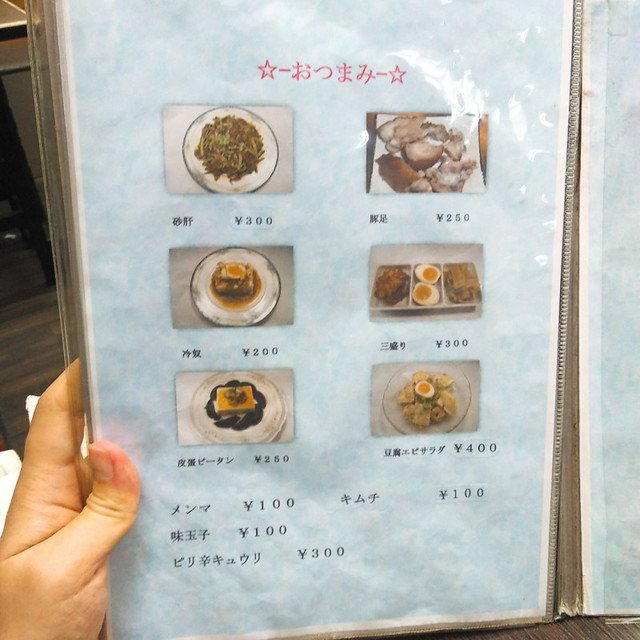 ☆-おつまみ-☆
砂肝 ￥300 豚足 ￥250
冷奴 ￥200 三盛り ￥300
皮蛋ピータン ￥250 豆腐エビサラダ ￥400
メンマ ￥100 キムチ ￥100
味玉子 ￥100
ピリ辛キュウリ ￥300